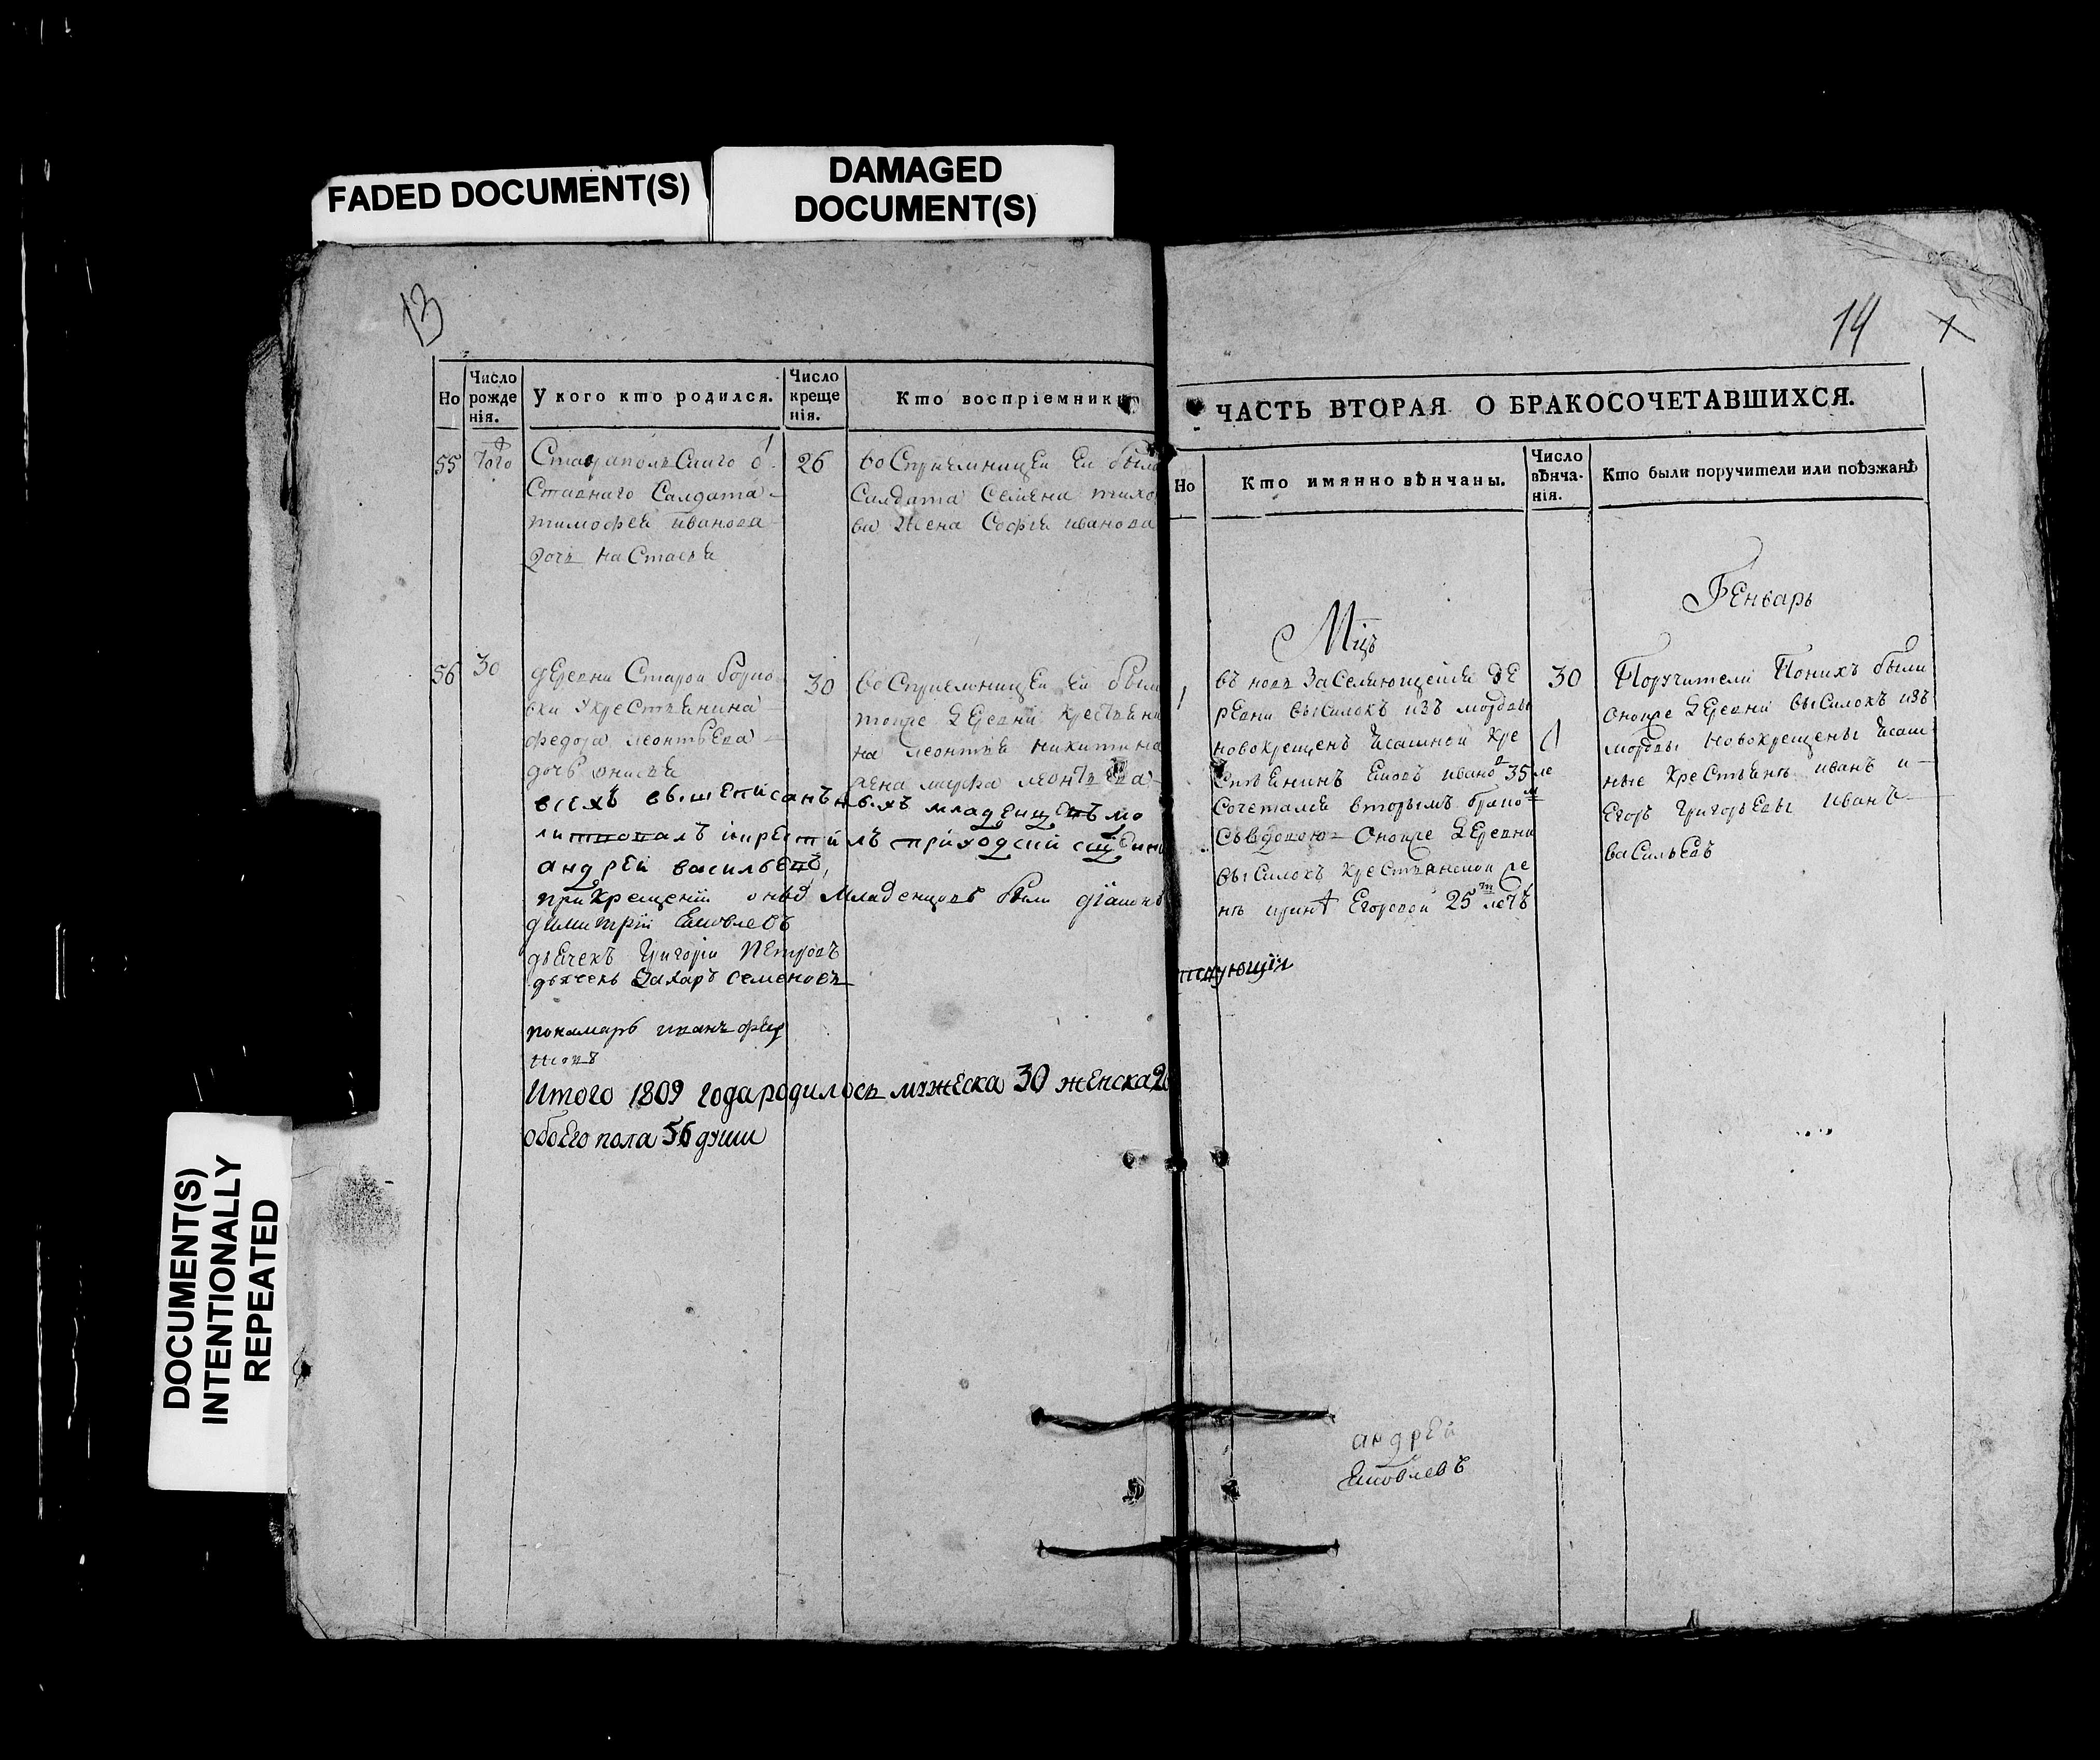 FADED DOCUMENT(S)
DAMAGED
DOCUMENT(S)
DOCUMENT(S)
INTENTIONALLY
REPEATED
13
Но
Число
рожде
нія.
У кого кто родился.
Число
креще
нія.
Кто воспріемники
55
того
Ставраполскаго о
Ставнаго Салдата
тимофея иванова
дочь настасья
26
воСприемницею ей была
Салдата Семена тихо
ва жена Софья иванова
56
30
деревни Старой
ки укрестьянина
федора леонтьева
дочь
30
воСприемницею ей была
тояже деревни крестьяни
на леонтия никитина
жена марфа леонтьева
всехъ вышеписанныхъ младенцевъ мо
литвовалъ икрестилъ приходский священи
андрей васильевъ
прикрещении оныхъ младенцовъ были діаконъ
димитрій Яковлевъ
дьячекъ григорій петровъ
дьячекъ Захаръ семеновъ
понамарь иванъ
Итого 1809 года родилось мужеска 30 женска 26
обоего пола 56 души
14
ЧАСТЬ ВТОРАЯ О БРАКОСОЧЕТАВШИХСЯ.
Но
Кто имянно вѣнчаны.
Число
вѣнча-
нія.
Кто были поручители или поѣзжанѣ
Мцъ
Генварь
1
въ новь заселяющейся де
ревни выселокъ изъ мордвы
новокрещенъ ясашной кре
стьянинъ яковъ ивановъ 35 ле
сочетался вторымъ бракомъ
съ вдовою оноиже деревни
выселокъ крестьянской же
Егоровой 25 летъ
30
Поручители Понихъ были
оноиже деревни выселокъ изъ
мордвы новокрещены ясаш
ные крестьяне иванъ и
егоръ григорьевы иванъ
васильевъ
андрей
Яковлевъ